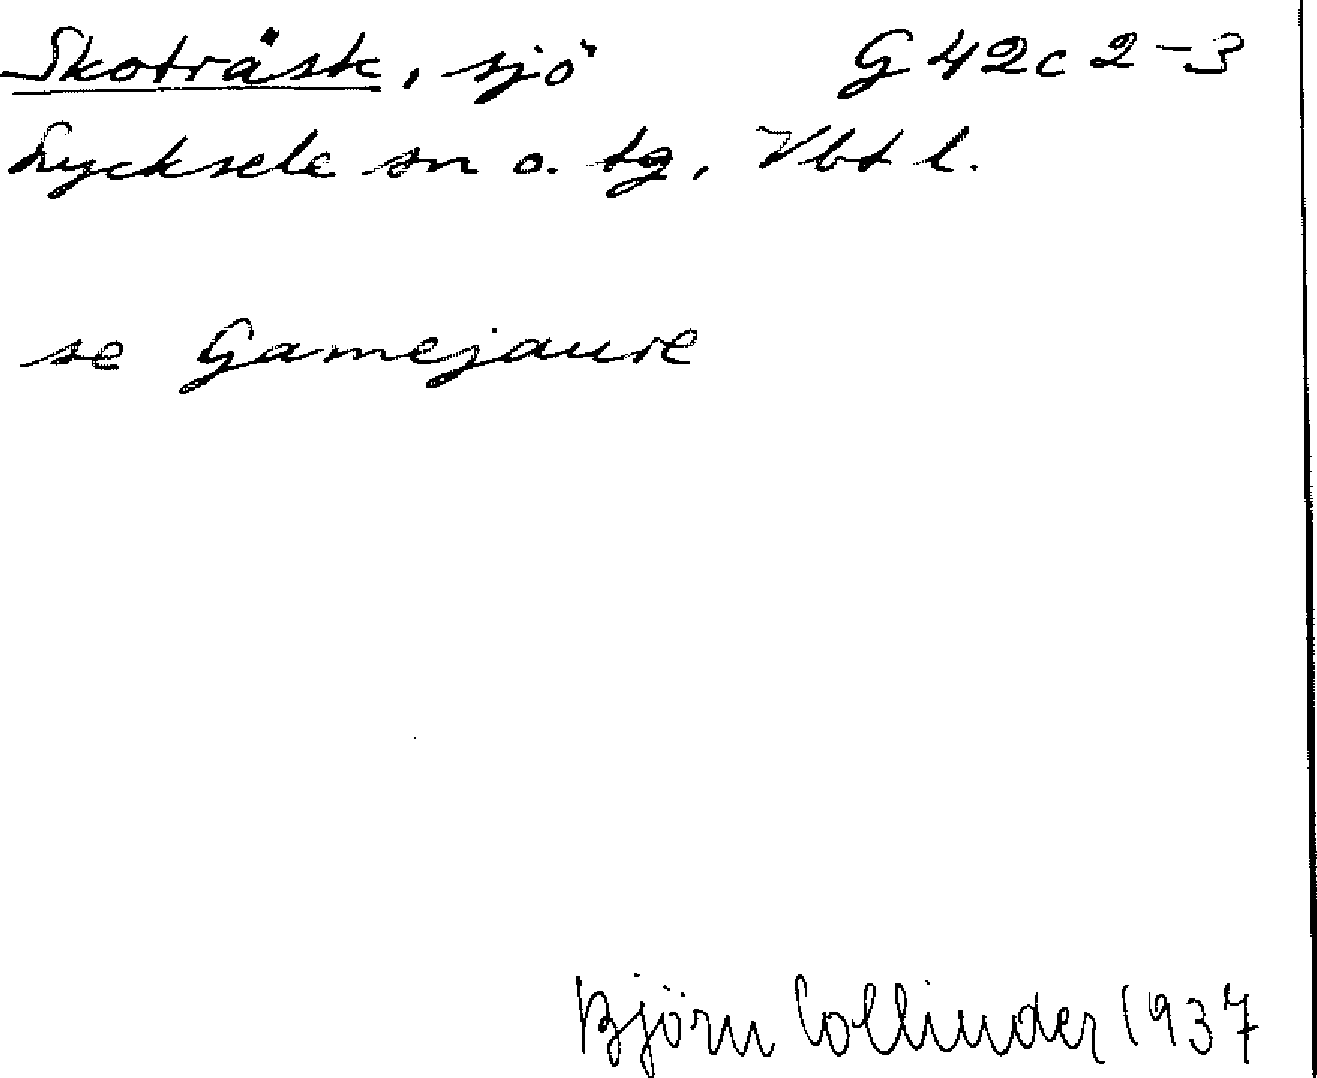 Skoträsk, sjö G 42 c 2-3
Lycksele sn o. tg, Vbt l.
se Gamejaure
Björn Collinder 1937